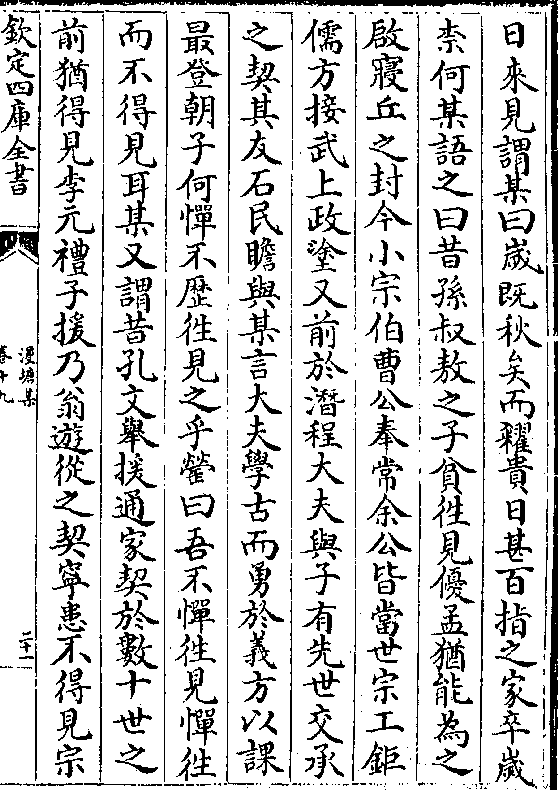 日來見謂某曰嵗既秋矣而糴貴日甚百指之家卒嵗
柰何某語之曰昔孫叔敖之子貧徃見優孟猶能為之
啟寢丘之封今小宗伯曹公奉常余公皆當世宗工鉅
儒方接武上政塗又前於潛程大夫與子有先世交承
之契其友石民瞻與某言大夫學古而勇於義方以課
最登朝子何憚不歴徃見之乎鎣曰吾不憚徃見憚徃
而不得見耳某又謂昔孔文舉援通家契於數十世之
前猶得見李元禮子援乃翁遊從之契寧患不得見宗
欽定四庫全書
漫塘集
卷十九
二十一